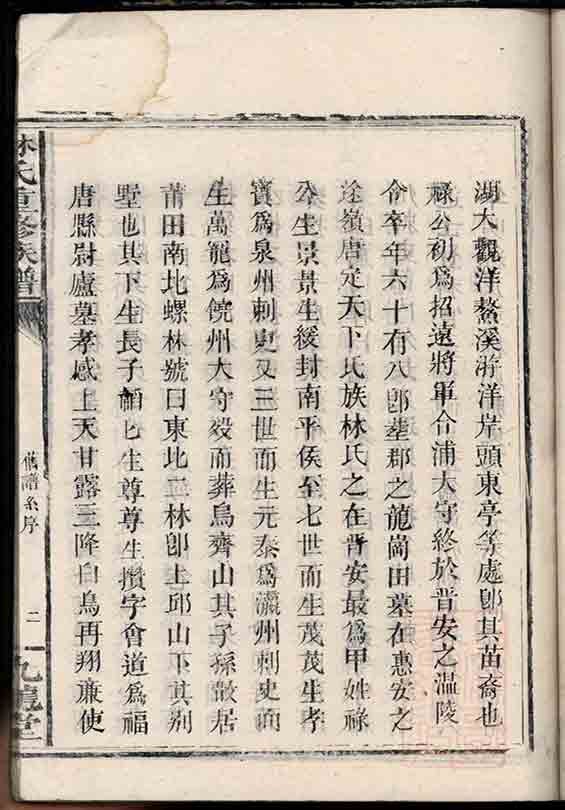 湖大觀洋鰲溪游洋岸頭東亭等處卽其苗裔也
祿公初爲招遠將軍合浦太守終於晉安之溫陵
令卒年六十有八卽塟郡之龍崗田墓在惠安之
途嶺唐定天下氏族林氏之在晋安最爲甲姓祿
公生景景生緩封南平侯至七世而生茂茂生孝
寳爲泉州刺史又三世而生元泰爲瀛州刺史而
生萬寵爲饒州太守歿而葬烏齊山其子孫散居
莆田南北螺林號曰東北二林卽上邱山下其别
墅也其下生長子韜匕生尊尊生攢字會道爲福
唐縣尉廬墓孝感上天甘露三降白烏再翔亷使
林氏重修族譜
舊譜系序
二
九龍堂